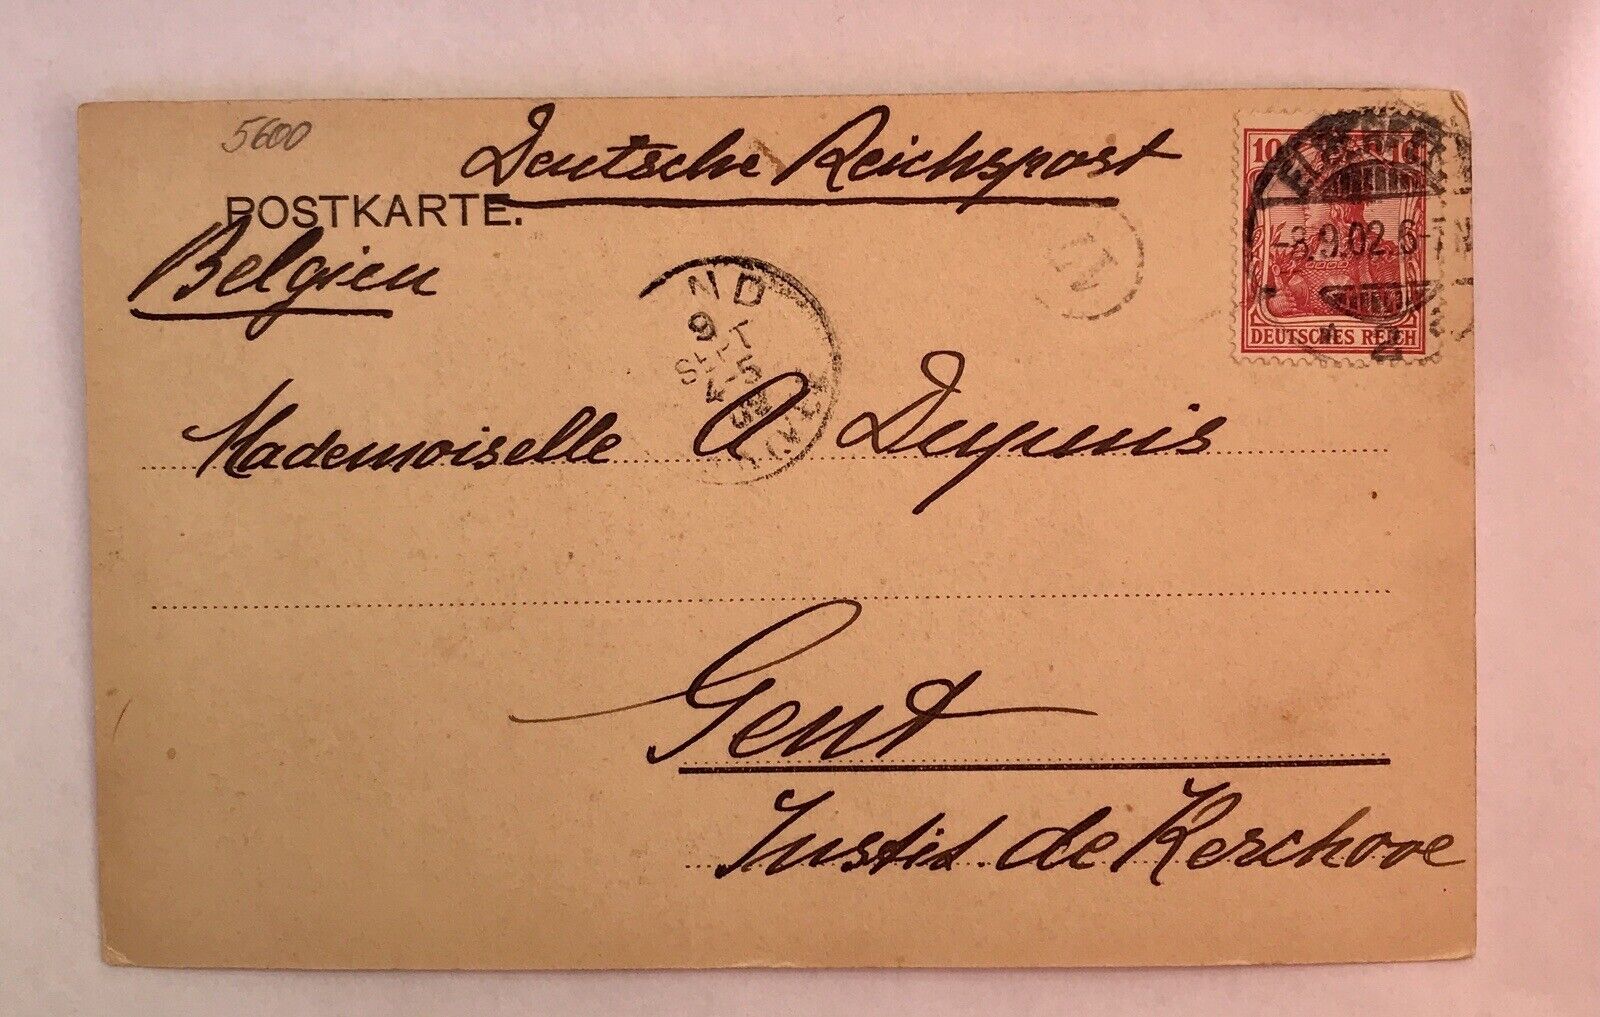 5600
Deutsche Reichspost
POSTKARTE.
Belgien
10 10
-8.9.02.6-7N
2
DEUTSCHES REICH
ND
9
SEPT
4-5
Mademoiselle A Dupuis
Gent
Justit. de Kerchove